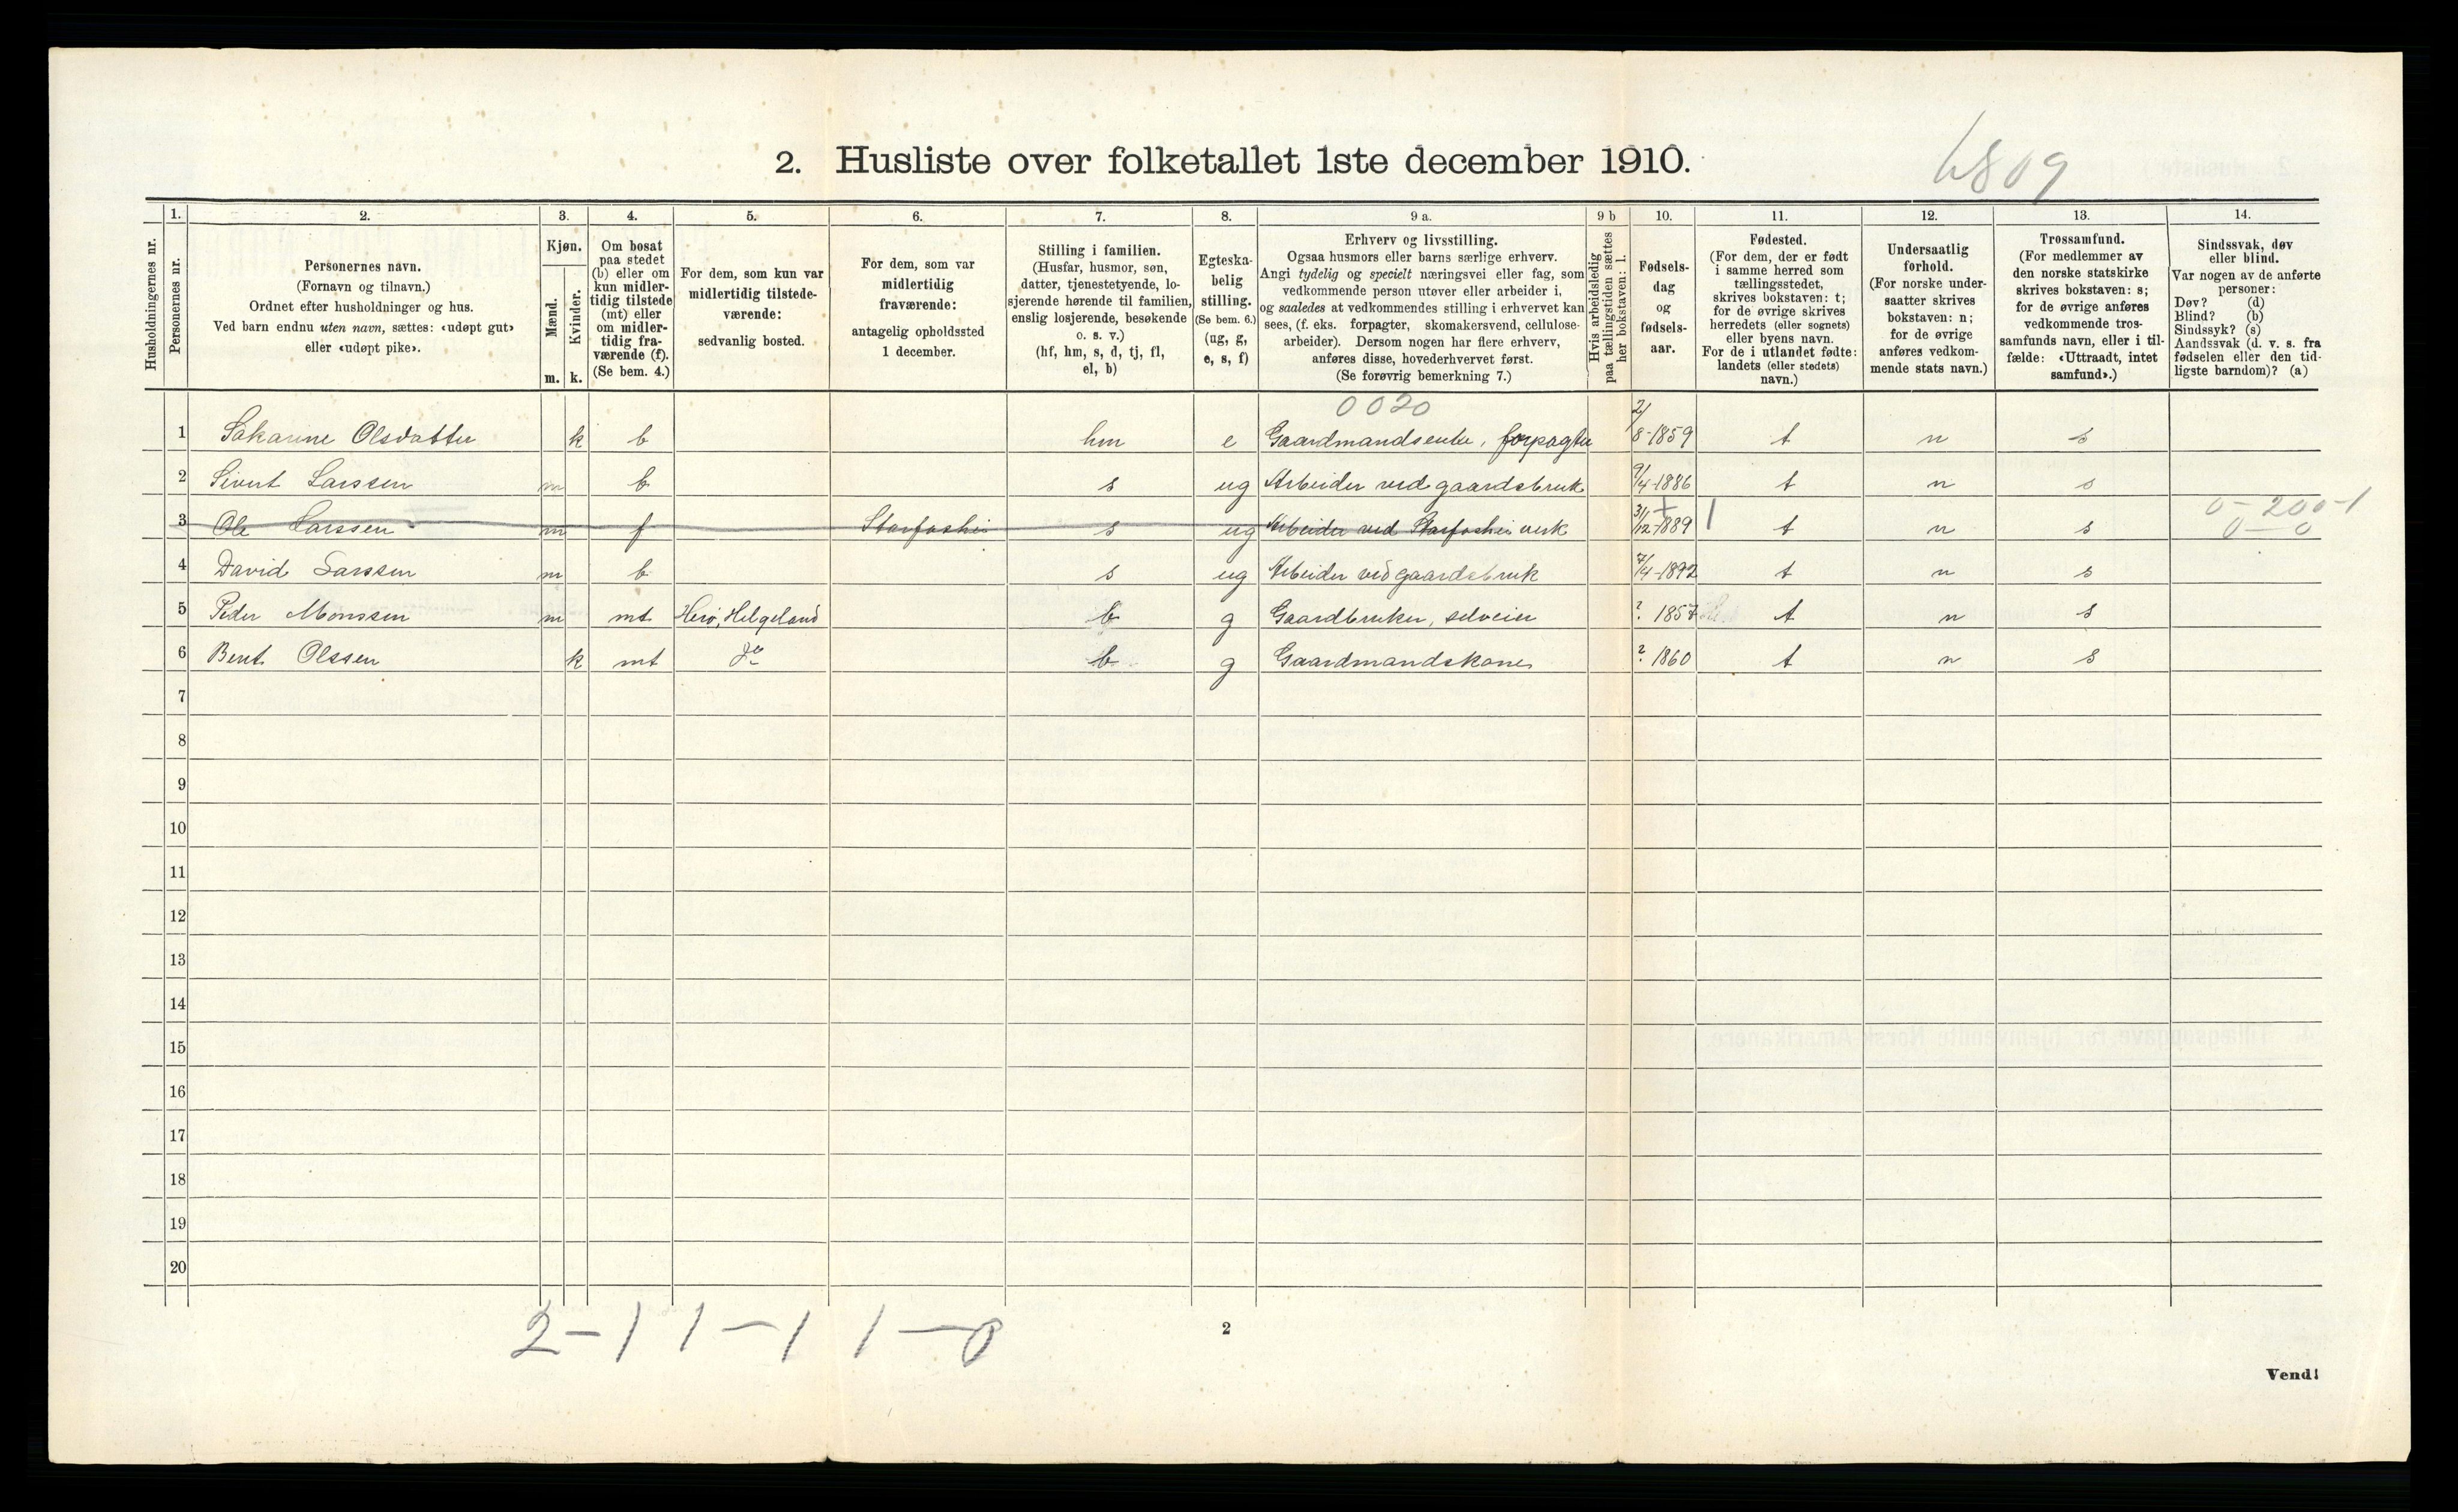 2. Husliste over folketallet 1ste december 1910.
6809
Husholdningernes nr.
1.
Personernes nr.
2.
Personernes navn.
(Fornavn og tilnavn.)
Ordnet efter husholdninger og hus.
Ved barn endnu uten navn, sættes: «udøpt gut»
eller «udøpt pike».
3.
Kjøn.
Mænd.
m.
Kvinder.
k.
4.
Om bosat
paa stedet
(b) eller om
kun midler-
tidig tilstede
(mt) eller
om midler-
tidig fra-
værende (f).
(Se bem. 4.)
5.
For dem, som kun var
midlertidig tilstede-
værende:
sedvanlig bosted.
6.
For dem, som var
midlertidig
fraværende:
antagelig opholdssted
1 december.
7.
Stilling i familien.
(Husfar, husmor, søn,
datter, tjenestetyende, lo-
sjerende hørende til familien,
enslig losjerende, besøkende
o. s. v.)
(hf, hm, s, d, tj, fl,
el, b)
8.
Egteska-
belig
stilling.
(Se bem. 6.)
(ug, g,
e, s, f)
9 a.
Erhverv og livsstilling.
Ogsaa husmors eller barns særlige erhverv.
Angi tydelig og specielt næringsvei eller fag, som
vedkommende person utøver eller arbeider i,
og saaledes at vedkommendes stilling i erhvervet kan
sees, (f. eks. forpagter, skomakersvend, cellulose-
arbeider). Dersom nogen har flere erhverv,
anføres disse, hovederhvervet først.
(Se forøvrig bemerkning 7.)
9 b
Hvis arbeidsledig
paa tællingstiden sættes
her bokstaven: l.
10.
Fødsels-
dag
og
fødsels-
aar.
11.
Fødested.
(For dem, der er født
i samme herred som
tællingsstedet,
skrives bokstaven: t;
for de øvrige skrives
herredets (eller sognets)
eller byens navn.
For de i utlandet fødte:
landets (eller stedets)
navn.)
12.
Undersaatlig
forhold.
(For norske under-
saatter skrives
bokstaven: n;
for de øvrige
anføres vedkom-
mende stats navn.)
13.
Trossamfund.
(For medlemmer av
den norske statskirke
skrives bokstaven: s;
for de øvrige anføres
vedkommende tros-
samfunds navn, eller i til-
fælde: «Uttraadt, intet
samfund».)
14.
Sindssvak, døv
eller blind.
Var nogen av de anførte
personer:
Døv? (d)
Blind? (b)
Sindssyk? (s)
Aandssvak (d. v. s. fra
fødselen eller den tid-
ligste barndom)? (a)
0020
1 Sakarine Olsdatter k b hm e Gaardmandsenke, forpagter 2/8-1859 t n s
2 Sivert Larssen m b s ug Arbeider ved gaardsbruk 9/4-1886 t n s
0-200-1
3 Ole Larssen m f Storfoshei s ug Arbeider ved Storfoshei verk 31/12-1889 t n s 0-0
4 David Larssen m b s ug Arbeider ved gaardsbruk 7/4-1892 t n s
5 Peder Monssen m mt Herö, Helgeland b g Gaardbruker, selveier ? 1857 t n s
6 Berit Olssen k mt do b g Gaardmandskone ? 1860 t n s
7
8
9
10
11
12
13
14
15
16
17
18
19
20
2-1 1-1 1-0
2
Vend!